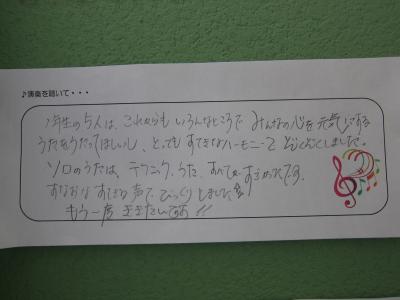 ♪演奏を聴いて・・・
1年生の5人は、これからもいろんなところで みんなの心を元気にする
うたをうたってほしいし、とってもすてきなハーモニーで どくどくしました。
ソロのうたは、テクニック、うた、すべて すきめたです。
すなおな すてきな声で びっくりしました
もう一度 ききたいです!!